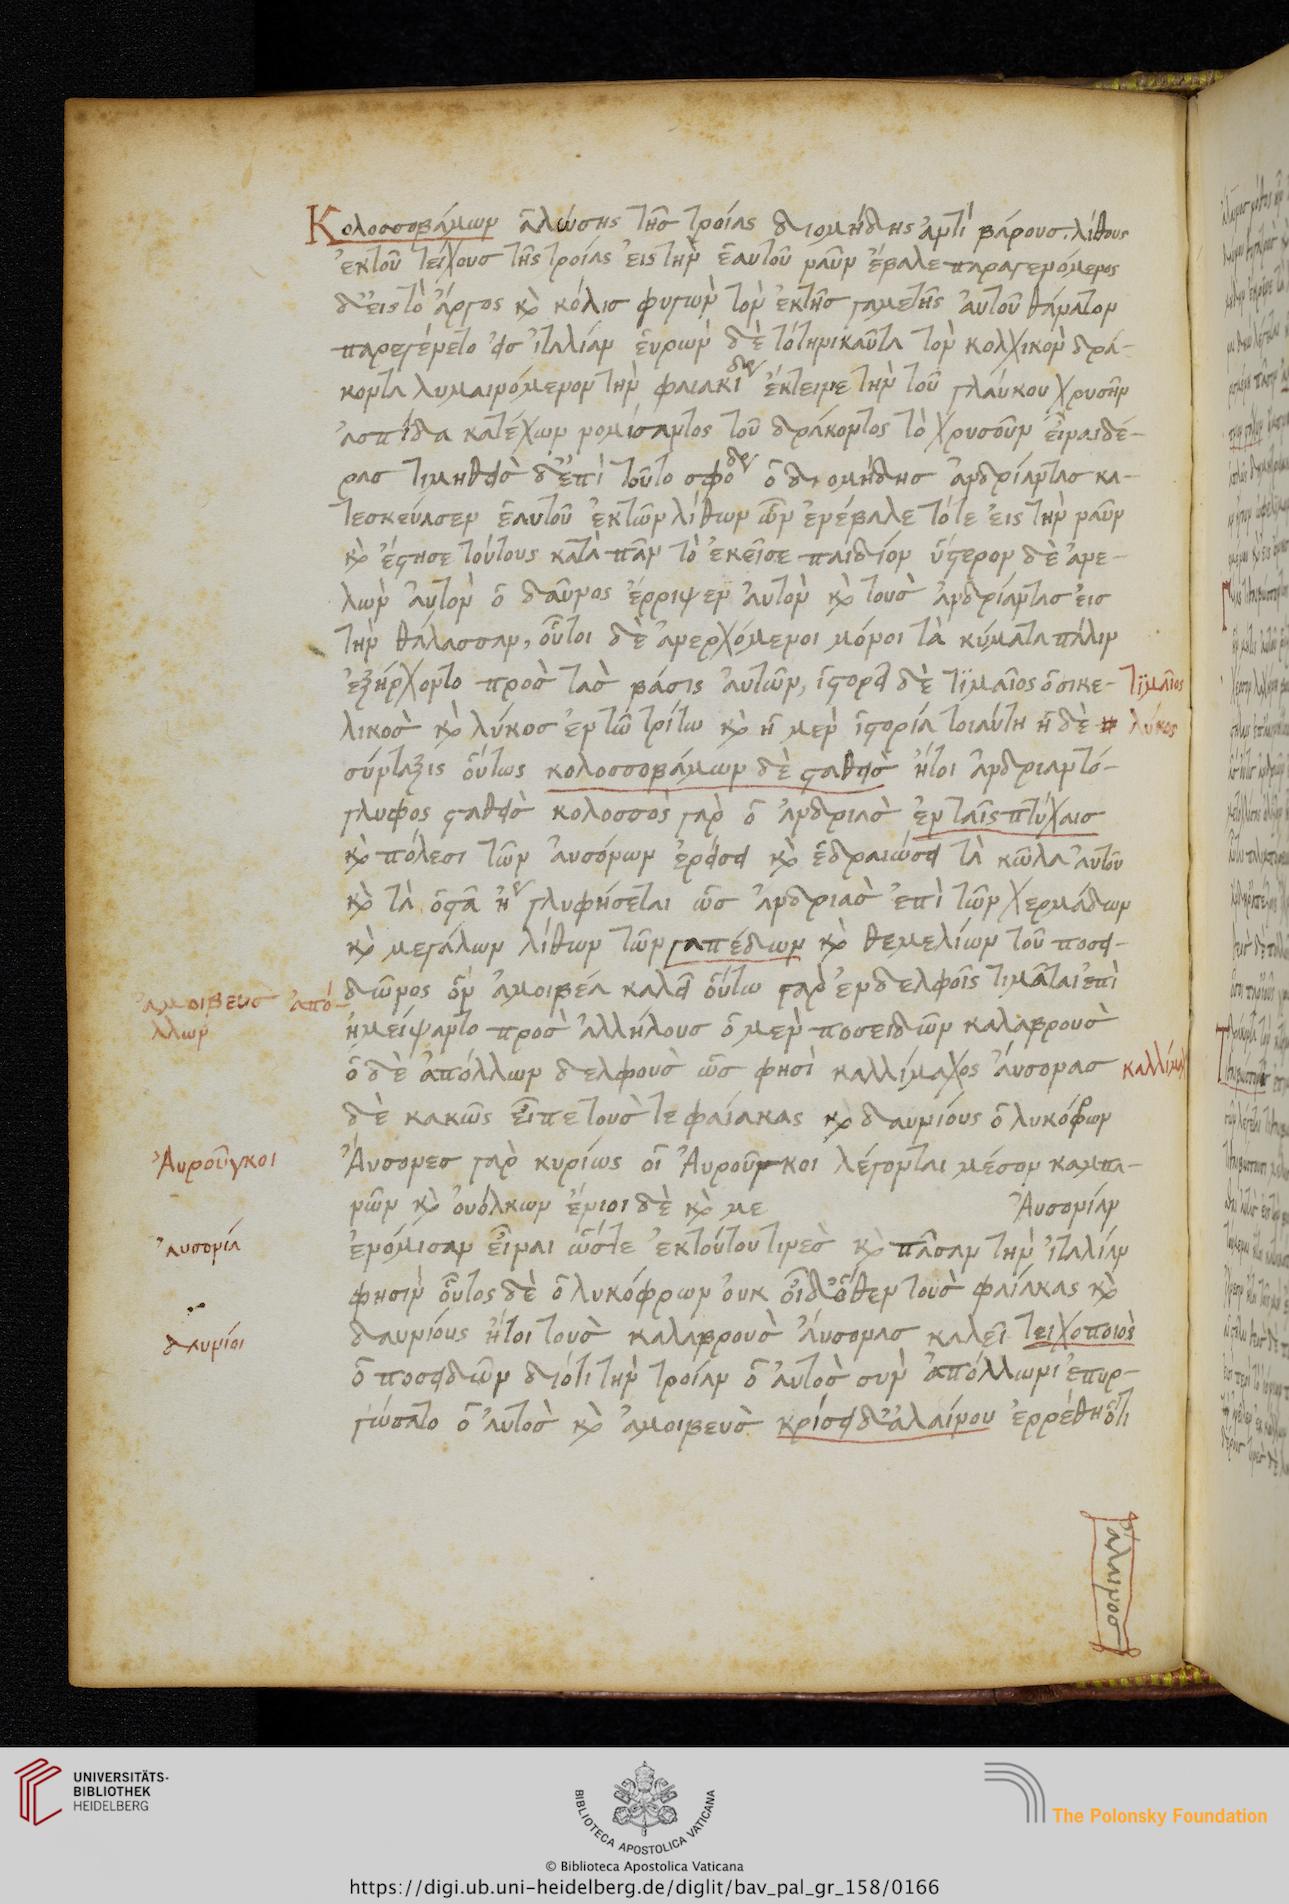 Κολοσσοβάμων ἁλώσης τῆς τροίας διομήδης ἀντὶ βάρους λίθους
ἐκ τοῦ τείχους τῆς τροίας εἰς τὴν ἑαυτοῦ ναῦν ἔβαλε παραγενόμενος
δ' εἰς τὸ ἄργος κὶ κόλις φυγὼν τὸν ἐκ τῆς γαμετῆς αὐτοῦ θάνατον
παρεγένετο εἰς ἰταλίαν εὑρὼν δὲ τὸ τηνικαῦτα τὸν κολχικὸν δρά-
κοντα λυμαινόμενον τὴν φαιακίδα ἔκτεινε τὴν τοῦ γλαύκου χρυσῆν
ἀσπίδα κατέχων νομίσαντος τοῦ δράκοντος τὸ χρυσοῦν εἶναι δέ-
ρας τιμηθεὶς δ' ἐπὶ τοῦτο σφοδ ὁ διομήδης ἀνδριάντας κα-
τεσκεύασεν ἑαυτοῦ ἐκ τῶν λίθων ὧν ἐνέβαλε τότε εἰς τὴν ναῦν
κὶ ἔστησε τούτους κατὰ πᾶν τὸ ἐκεῖσε παιδίον ὕστερον δὲ ἀνε-
λὼν αὐτὸν ὁ δαῦνος ἔρριψεν αὐτὸν κὶ τοὺς ἀνδριάντας εἰς
τὴν θάλασσαν, οὗτοι δὲ ἀνερχόμενοι μόνοι τὰ κύματα πάλιν
ἐξήρχοντο πρὸς τὰς βάσις αὐτῶν, ἱστορεῖ δὲ τίμαῖος ὁ σικε- τίμαῖος
λικὸς κὶ λύκος ἐν τῶ τρίτω κὶ ἡ μὲν ἱστορία τοιαύτη ἡ δὲ λύκος
σύνταξις οὕτως κολοσσοβάμων δὲ σταθεὶς ἤτοι ἀνδριαντό-
γλυφος σταθεὶς κολοσσὸς γὰρ ὁ ἀνδριὰς ἐν ταῖς πτύχαις
κὶ πόλεσι τῶν αὐσόνων ἐρείσει κὶ ἑδραιώσει τὰ κῶλα αὐτοῦ
κὶ τὰ ὀστᾶ ἢ γλυφήσεται ὡς ἀνδριὰς ἐπὶ τῶν χερμάδων
κὶ μεγάλων λίθων τῶν γαπέδων κὶ θεμελίων τοῦ ποσει-
ἀμοιβευς ἀπό- δῶνος ὃν ἀμοιβέα καλεῖ οὕτω γὰρ ἐν δελφοῖς τιμᾶται ἐπὶ
λλων ἠμείψαντο πρὸς ἀλλήλους ὁ μὲν ποσειδῶν καλαβροὺς
ὁ δὲ ἀπόλλων δελφοὺς ὥς φησὶ καλλίμαχος αὔσονας καλλίμαχ
δὲ κακῶς εἶπε τούς τε φαίακας κὶ δαυνίους ὁ λυκόφρων
Αὐροῦγκοι Αὔσονες γὰρ κυρίως οἱ Αὐροῦγκοι λέγονται μέσον καμπα-
νῶν κὶ οὐόλκων ἔνιοι δὲ κὶ με Αὐσονίαν
αὐσονία ἐνόμισαν εἶναι ὥστε ἐκ τούτου τινὲς κὶ πᾶσαν τὴν ἰταλίαν
φησὶν οὗτος δὲ ὁ λυκόφρων οὐκ οἶδ' ὅθεν τοὺς φαίακας κὶ
δαυνίοι δαυνίους ἤτοι τοὺς καλαβροὺς αὔσονας καλεῖ τειχοποιὸς
ὁ ποσειδῶν διότι τὴν τροίαν ὁ αὐτὸς σὺν ἀπόλλωνι ἐπυρ-
γώσατο ὁ αὐτὸς κὶ ἀμοιβεὺς κρίσει δ' ἀλαίνου ἐρρέθη ὅτι
ἀλαινος
UNIVERSITÄTS-
BIBLIOTHEK
HEIDELBERG
BIBLIOTECA APOSTOLICA VATICANA
The Polonsky Foundation
© Biblioteca Apostolica Vaticana
https://digi.ub.uni-heidelberg.de/diglit/bav_pal_gr_158/0166